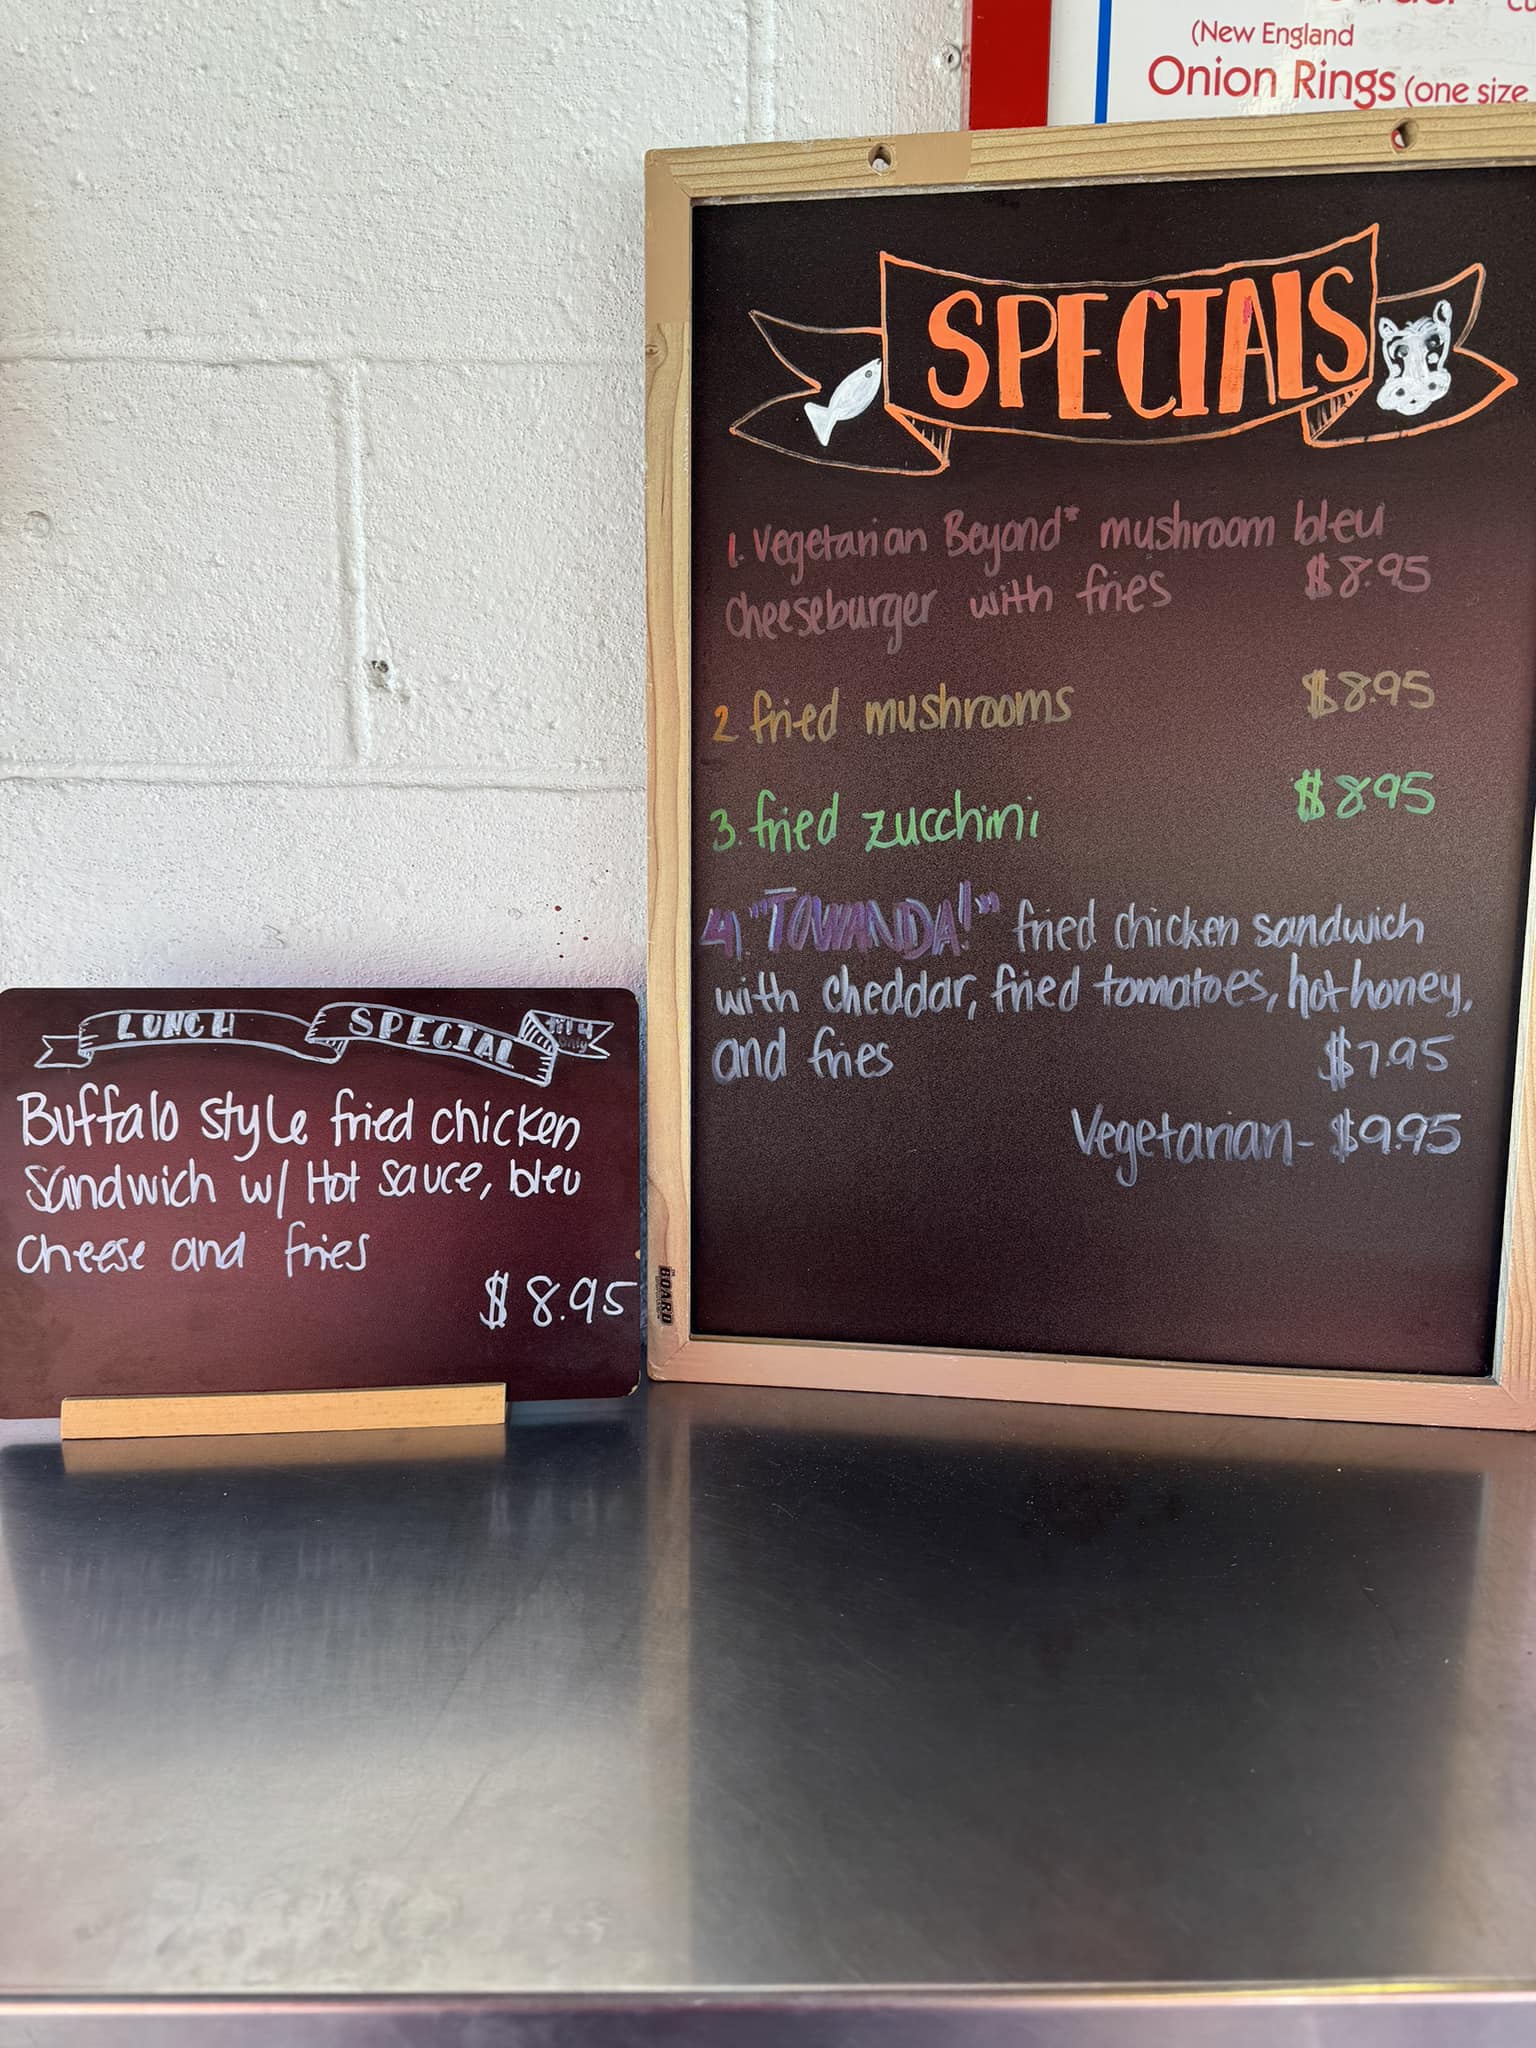 (New England
Onion Rings (one size
SPECIALS
1. Vegetarian Beyond* mushroom bleu
cheeseburger with fries $8.95
2 fried mushrooms $8.95
3. fried zucchini $8.95
4. "TOWANDA!" fried chicken sandwich
with cheddar, fried tomatoes, hot honey,
and fries $7.95
Vegetarian- $9.95
BOARD
LUNCH SPECIAL till 4 only
Buffalo style fried chicken
sandwich w/ Hot sauce, bleu
cheese and fries
$8.95